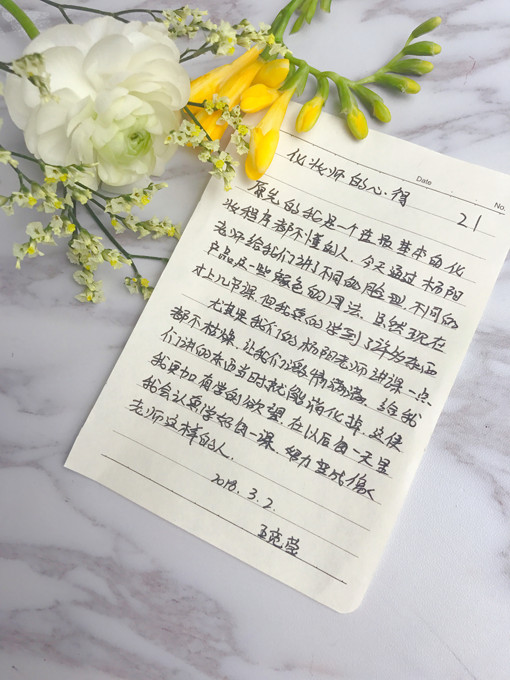 Date
No.
化妆师的心得
21
原先的我是一个连最基本的化
妆程序都不懂的人.今天通过杨阳
老师给我们讲了不同的脸型.不同的
产品及一些颜色的用法.虽然现在
才上几节课.但我真的学到了许多东西
尤其是我们的杨阳老师讲课一点
都不枯燥.让我们激情满满.给我
们讲的东西当时就能消化掉.这使
我更加有学的欲望.在以后每一天里
我会认真学好每一课.努力变成像
老师这样的人.
2018.3.2.
王克莹